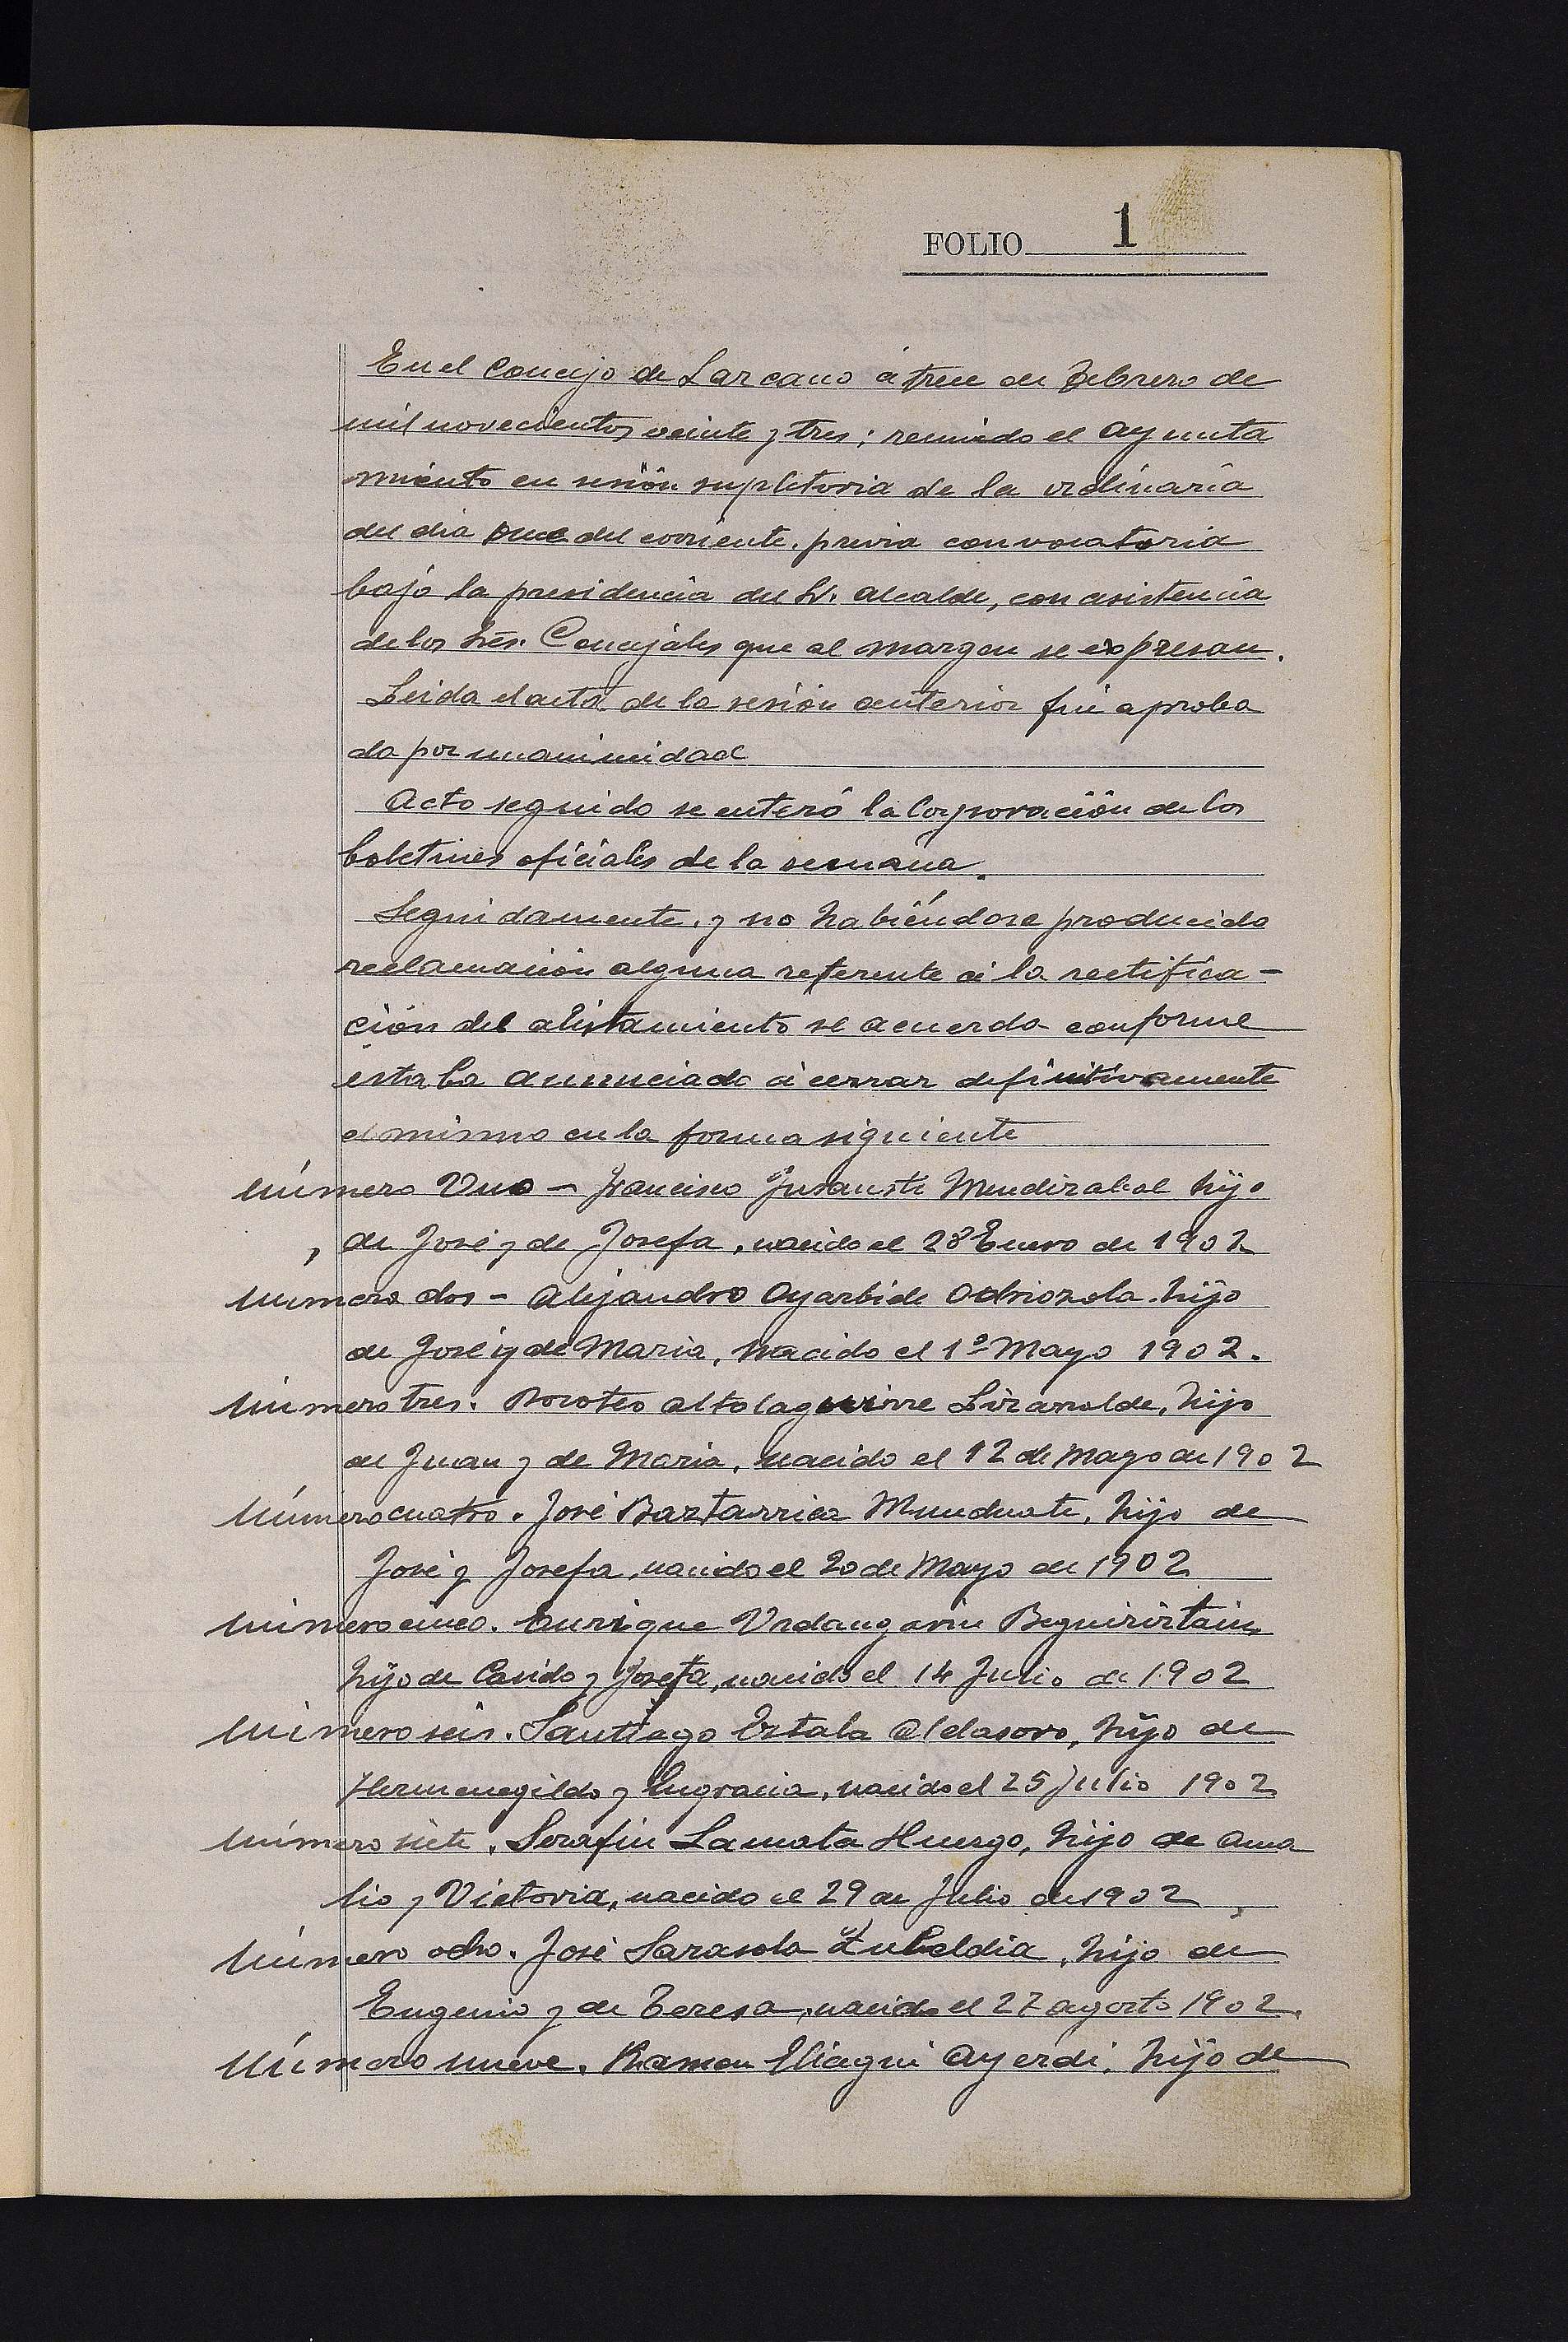 FOLIO 1
En el Concejo de Lazcano á trece de Febrero de
mil novecientos veinte y tres; reunido el Ayunta
miento en sesión supletoria de la ordinaria
del dia once del corriente, previa convocatoria
bajo la presidencia del Sr. Alcalde, con asistencia
de los Sres. Concejales que al margen se expresan.
Leida el acta de la sesión anterior fué aproba
da por unanimidad
Acto seguido se enteró la Corporación de los
boletines oficiales de la semana.
Seguidamente, y no habiéndose producido
reclamación alguna referente á la rectifica-
ción del alistamiento se acuerda conforme
estaba anunciado á cerrar definitivamente
el mismo en la forma siguiente
Número Uno - Francisco Mendizabal hijo
de José y de Josefa, nacido el 28 Enero de 1902
Número dos - Alejandro Ayarbide Odriozola hijo
de José y de Maria, nacido el 1º Mayo 1902.
Número tres. Doroteo Altolaguirre Lizarralde, hijo
de Juan y de Maria, nacido el 12 de Mayo de 1902
Número cuatro. José Baztarrica Munduate, hijo de
José y Josefa, nacido el 20 de Mayo de 1902
Número cinco. Enrique Urdangarin Beguiristain
hijo de y Josefa, nacido el 14 Julio de 1902
Número seis. Santiago Aldasoro, hijo de
Hermenegildo y Engracia, nacido el 25 Julio 1902
Número siete. Serafin Lamata Huergo, hijo de Ama
lio y Victoria, nacido el 29 de Julio de 1902
Número ocho. José Sarasola Zubeldia, hijo de
Eugenio y de Teresa, nacido el 27 agosto 1902.
Número nueve. Ramon Ayerdi, hijo de